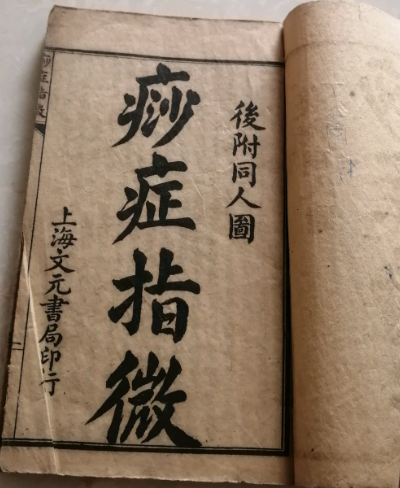 後附同人圖
痧症指微
上海文元書局印行
痧症指微